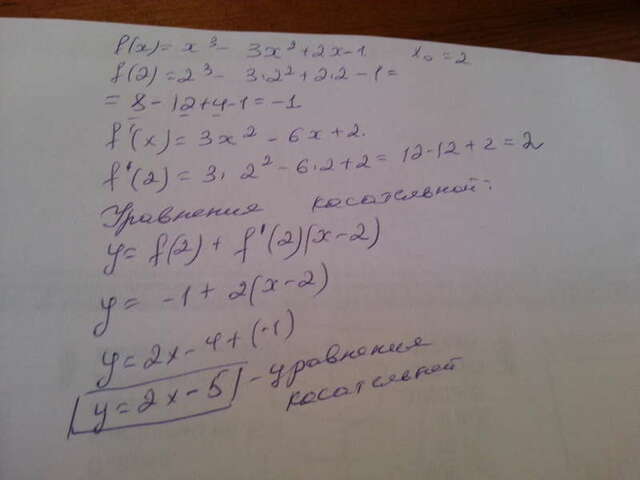 f(x) = x³ - 3x² + 2x - 1 x₀ = 2
f(2) = 2³ - 3·2² + 2·2 - 1 =
= 8 - 12 + 4 - 1 = -1
f'(x) = 3x² - 6x + 2.
f'(2) = 3·2² - 6·2 + 2 = 12 - 12 + 2 = 2
Уравнения касательной:
y = f(2) + f'(2)(x-2)
y = -1 + 2(x-2)
y = 2x - 4 + (-1)
y = 2x - 5 - уравнения
касательной